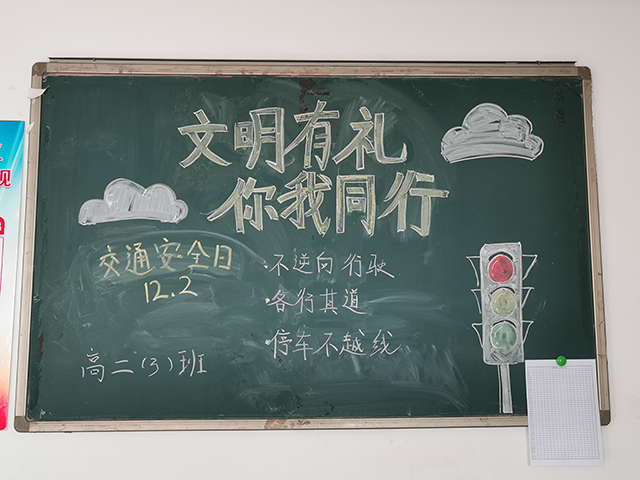 文明有礼
你我同行
交通安全日
12.2
·不逆向行驶
·各行其道
·停车不越线
高二(3)班